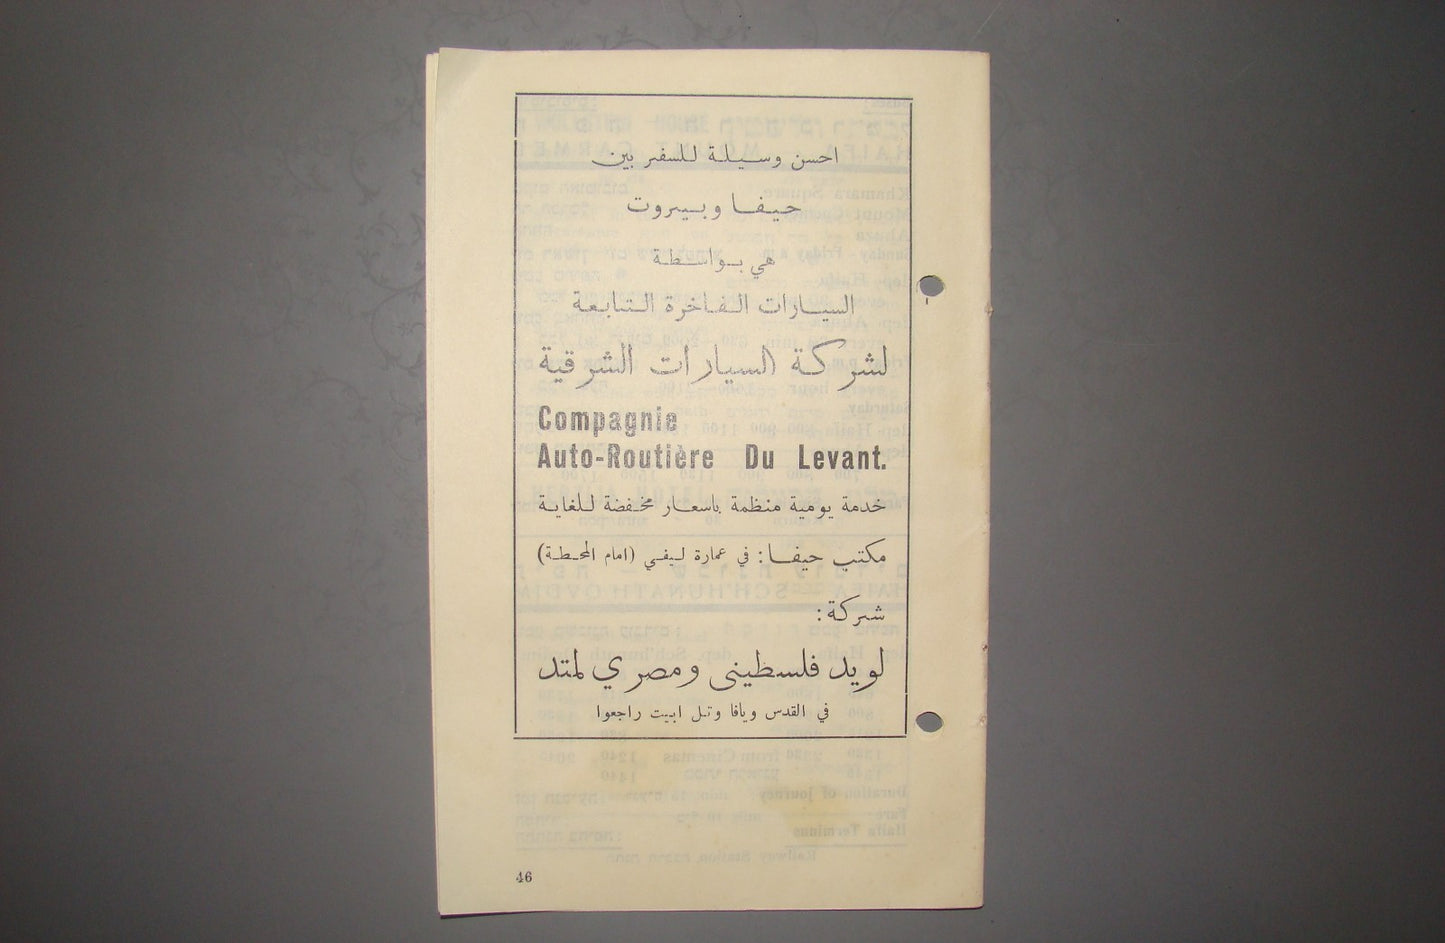 احسن وسيلة للسفر بين
حيفا وبيروت
هي بواسطة
السيارات الفاخرة التابعة
لشركة السيارات الشرقية
Compagnie
Auto-Routière Du Levant.
خدمة يومية منظمة باسعار مخفضة للغاية
مكتب حيفا: في عمارة ليفي (امام المحطة)
شركة:
لويد فلسطيني ومصري لمتد
في القدس ويافا وتل ابيت راجعوا
46